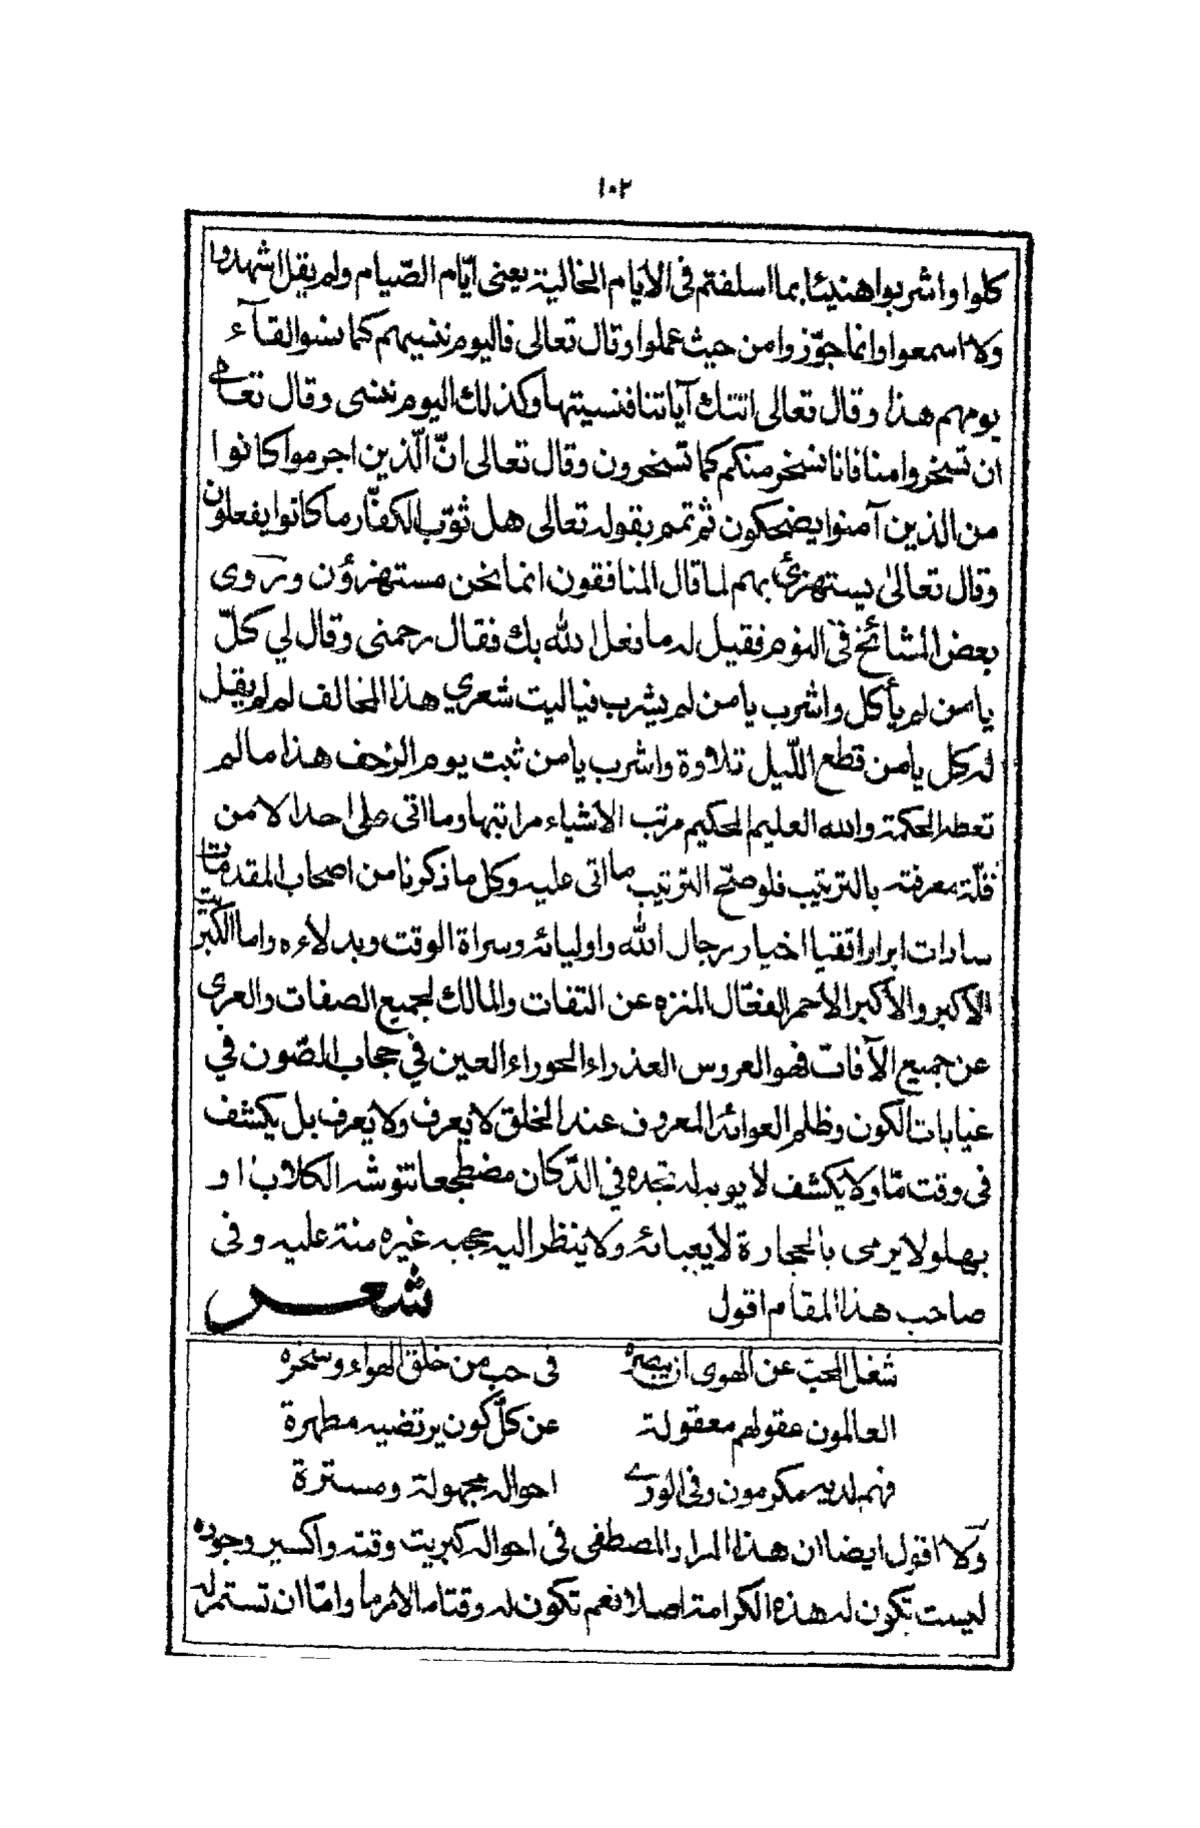 ١٠٢
كلوا واشربوا هنيئا بما اسلفتم فى الأيام الخالية يعنى ايّام الصّيام ولم يقل اشهدوا
ولا اسمعوا وانما جوّزوا من حيث عملوا وقال تعالى فاليوم ننسيهم كما نسوا لقآء
يومهم هذا وقال تعالى اتتك آياتنا فنسيتها وكذلك اليوم تنسى وقال تعالى
ان تسخروا منا فانا نسخر منكم كما تسخرون وقال تعالى انّ الّذين اجرموا كانوا
من الذين آمنوا يضحكون ثم تمم بقوله تعالى هل ثوّب الكفّار ما كانوا يفعلون
وقال تعالى يستهزئ بهم لما قال المنافقون انما نحن مستهزؤن وروى
بعض المشائخ فى النوم فقيل له ما فعل الله بك فقال رحمنى وقال لي كلّ
يا من لم يأكل واشرب يا من لم يشرب فياليت شعري هذا المخالف لم لم يقل
له كل يا من قطع اللّيل تلاوة واشرب يا من ثبت يوم الزحف هذا ما لم
تعطه الحكمة والله العليم الحكيم مرتب الأشياء مراتبها وما اتى على احد الا من
قلّة معرفته بالترتيب فلو صحّ الترتيب ما اتى عليه وكل ما ذكرنا من اصحاب المقدمات
سادات ابرار اتقيا اخيار رجال الله واوليائه وسراة الوقت وبدلاءه واما الكبريت
الأكبر والأكبر الأحمر الفعّال المنزه عن التفات والمالك لجميع الصفات والعرى
عن جميع الآفات فهو العروس العذراء الحوراء العين في حجاب الصّون في
غيابات الكون وظلم العوائد المعروف عند الخلق لا يعرف ولا يعرف بل يكشف
فى وقت مّا ولا يكشف لا يوبه له تجده في الدّكان مضطجعا تنوشه الكلاب او
بهلولا يرمى بالحجارة لا يعبا به ولا ينظر اليه عجبه غيره منة عليه وفى
صاحب هذا المقام اقول شعر
شغل المحبّ عن الهوى ان يبصره فى حب من خلق الهواء وسخره
العالمون عقولهم معقولة عن كلّ كون يرتضيه مطهرة
فهم لديه مكرمون وفى الورى احواله مجهولة ومسترة
ولا اقول ايضا ان هذا المراد المصطفى فى احواله كبريت وقته واكسير وجوده
ليست تكون له هذه الكرامة اصلا نعم تكون له وقتا ما لأمر ما واما ان تستمر له